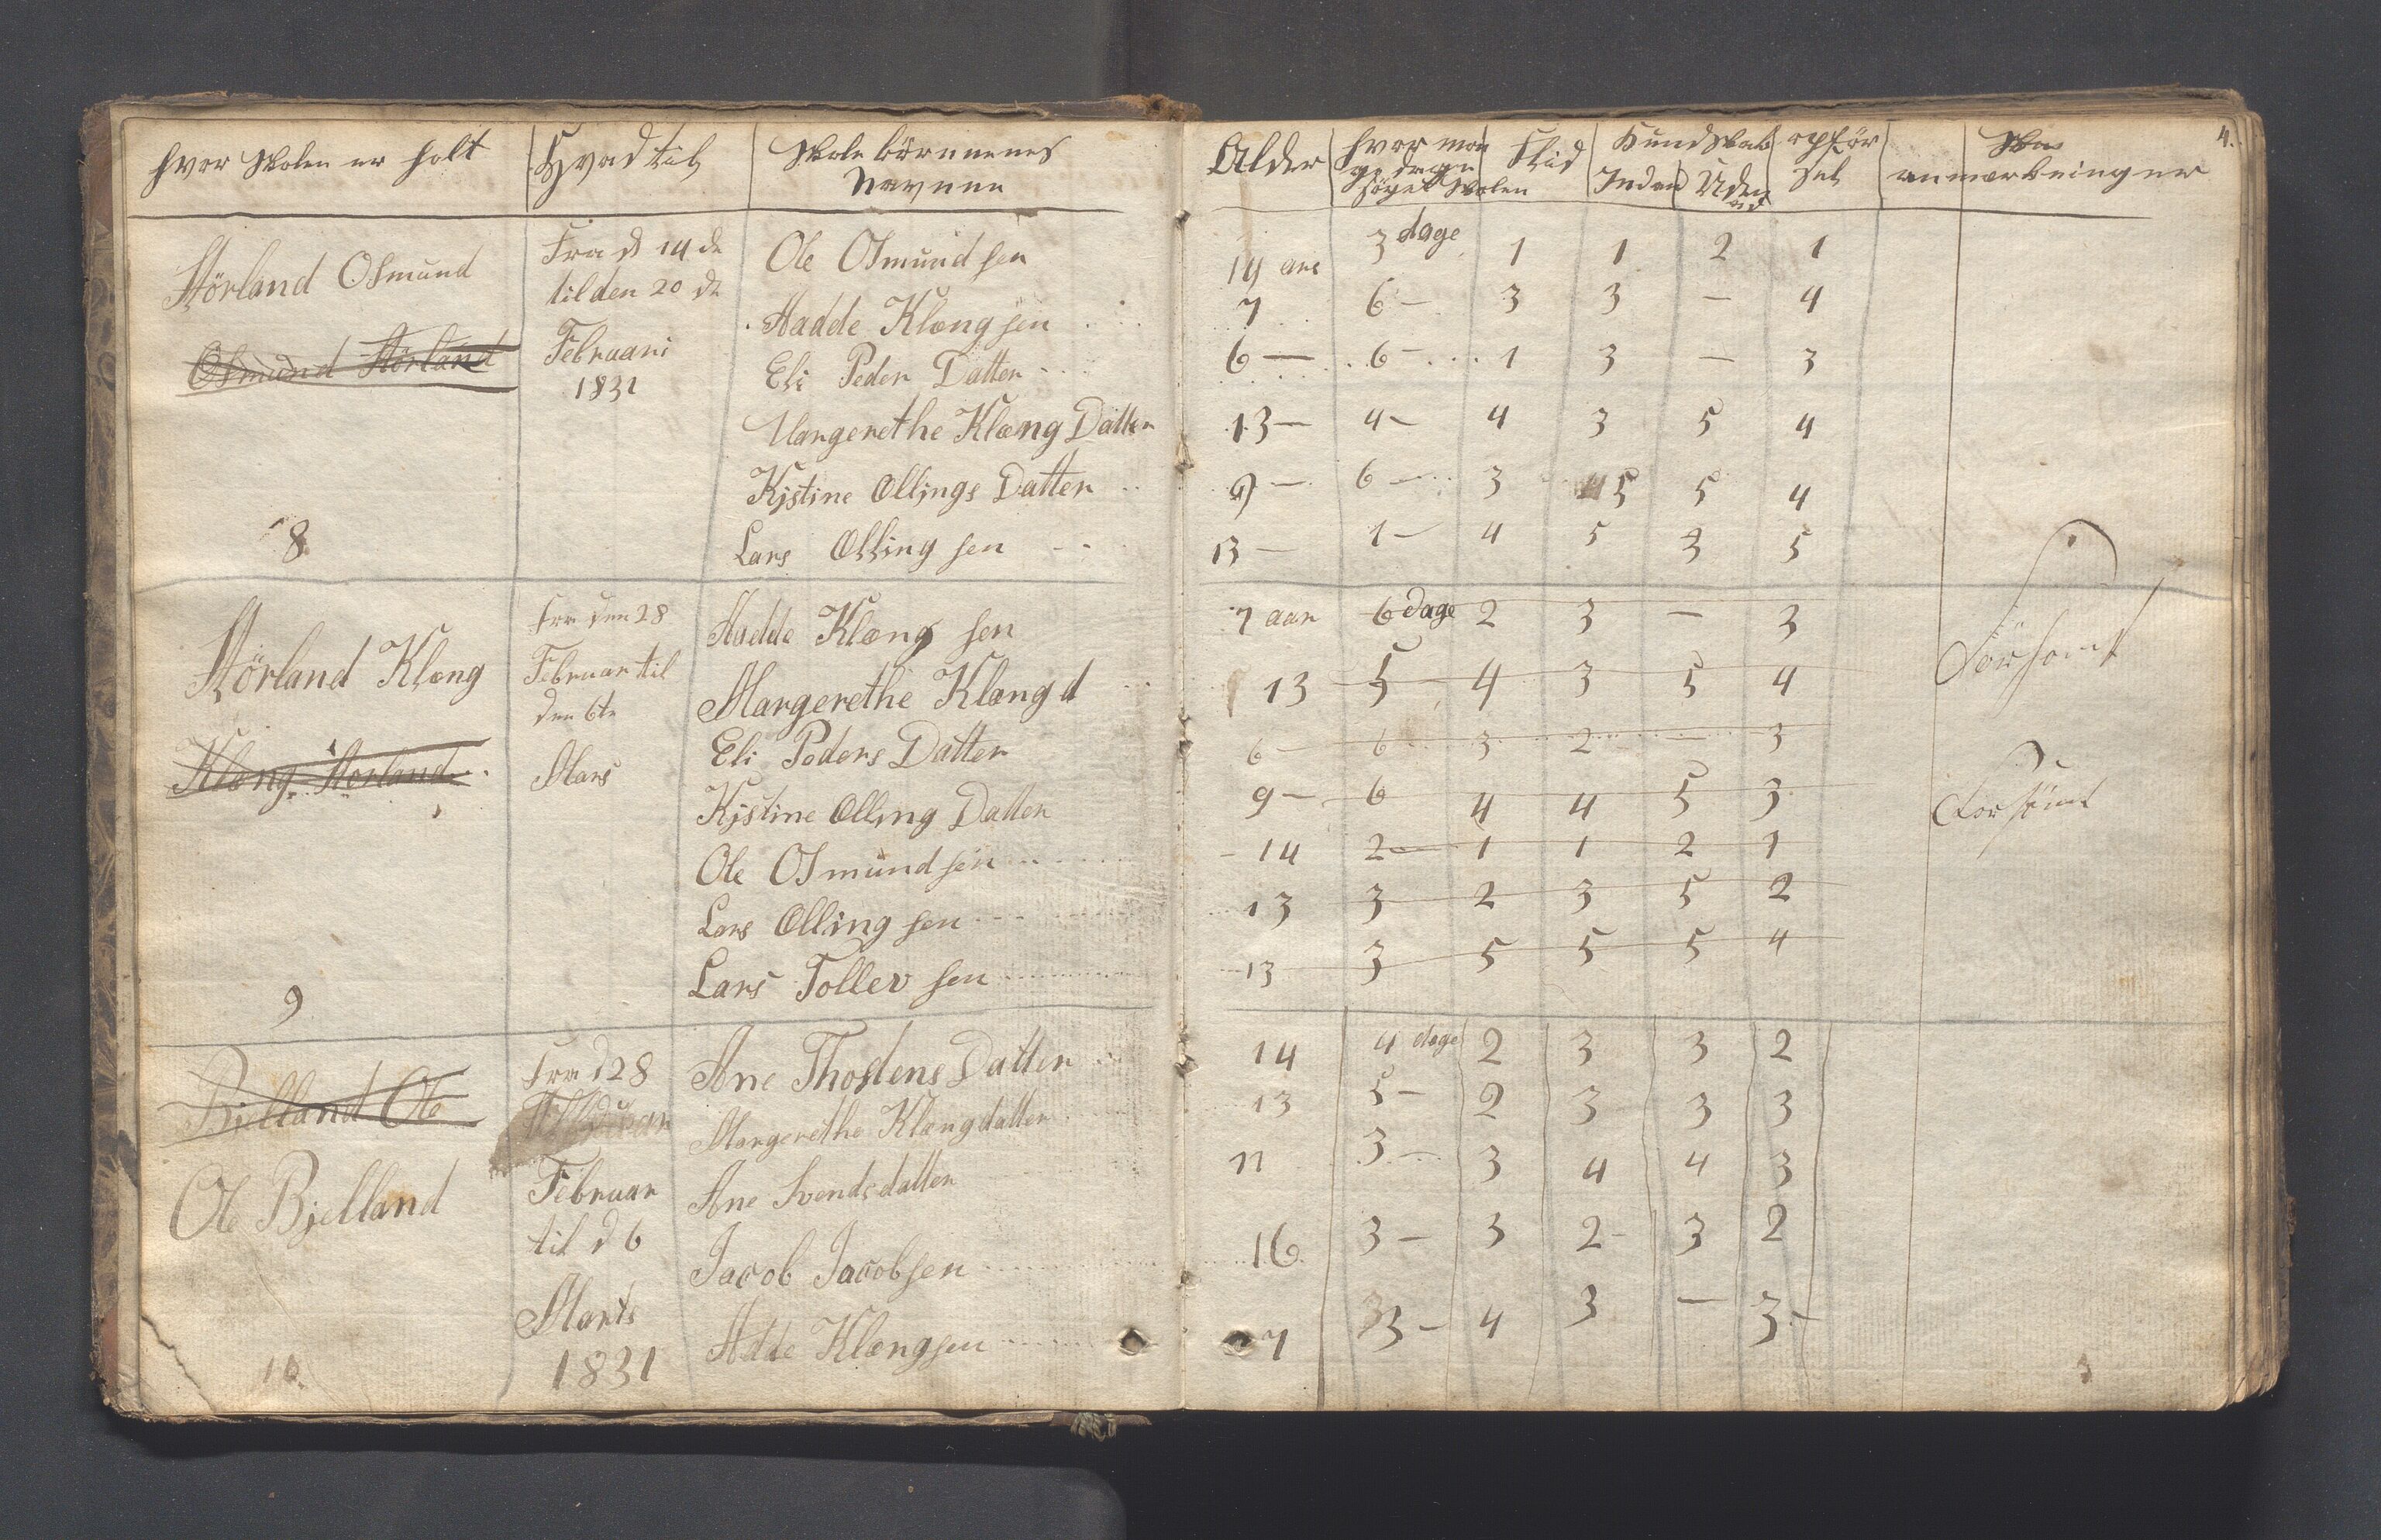 hvor Skolen er holt | Hvad tid | Skole börnenes Navnene | Alder | hvor man ge dage söget Skolen | Flid | Kundskab Inden Uden ad | opför sel | anmærkninger | 4.
Störland Osmund
Osmund Störland
8
Fra d 14 de
til den 20 de
Februari
1831
Ole Osmundsen | 14 are | 3 dage | 1 | 1 | 2 | 1
Aadde Klængsen | 7 | 6 – | 3 | 3 | – | 4
Eli Peder Datter | 6 – | 6 – | 1 | 3 | – | 3
Margerethe Klæng Datter | 13 – | 4 – | 4 | 3 | 5 | 4
Kjstine Ollings Datter | 9 – | 6 – | 3 | 5 | 5 | 4
Lars Olling sen | 13 – | 1 – | 4 | 5 | 3 | 5
Störland Klæng
Klæng Störland
9
Fra den 28
Februar til
den 6te
Mars
Aadde Klæng sen | 7 aar | 6 dage | 2 | 3 | – | 3
Margerethe Klæng d | 13 | 5 | 4 | 3 | 5 | 4 | Forsömt
Eli Peders Datter | 6 – | 6 | 3 | 2 | – | 3
Kjstine Olling Datter | 9 – | 6 | 4 | 4 | 5 | 3 | Forsömt
Ole Osmundsen | 14 | 2 – | 1 | 1 | 2 | 1
Lars Olling sen | 13 | 3 | 2 | 3 | 5 | 2
Lars Tollev sen | 13 | 3 | 5 | 5 | 5 | 4
Bjelland Ole
Ole Bjelland
10.
Fra d 28
Februar
til d 6
Marts
1831
Ane Thostens Datter | 14 | 4 dage | 2 | 3 | 3 | 2
Margerethe Klængdatter | 13 | 5 – | 2 | 3 | 3 | 3
Ane Svendsdatter | 11 | 3 – | 3 | 4 | 4 | 3
Jacob Jacobsen | 16 | 3 – | 3 | 2 – | 3 | 2
Adde Klængsen | 7 | 3 – | 4 | 3 | – | 3 –